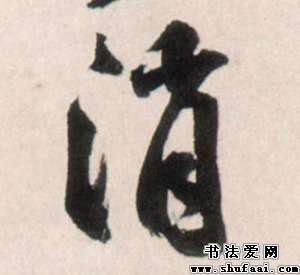 消
书法爱网
www.shufaai.com